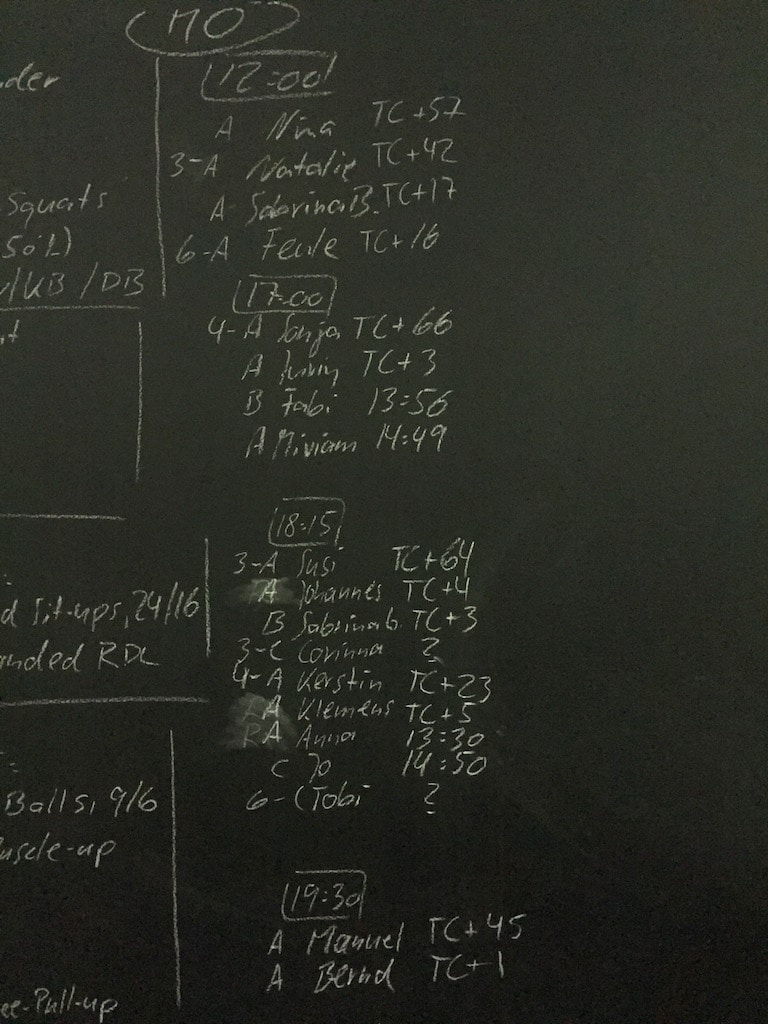 MO
12:00
A Nina TC+57
3-A Natalie TC+42
A Sabrina B. TC+17
6-A TC+16
17:00
4-A Sonja TC+66
A TC+3
B Fabi 13:56
A Miriam 14:49
18:15
3-A Susi TC+64
A Johannes TC+4
B Sabrina b. TC+3
3-C Corinna ?
4-A Kerstin TC+23
A Klemens TC+5
RA Anna 13:30
C Jo 14:50
6-C Tobi ?
19:30
A Manuel TC+45
A Bernd TC+1
Squats
/KB/DB
Sit-ups, 24/16
RDL
Balls, 9/6
-up
-Pull-up